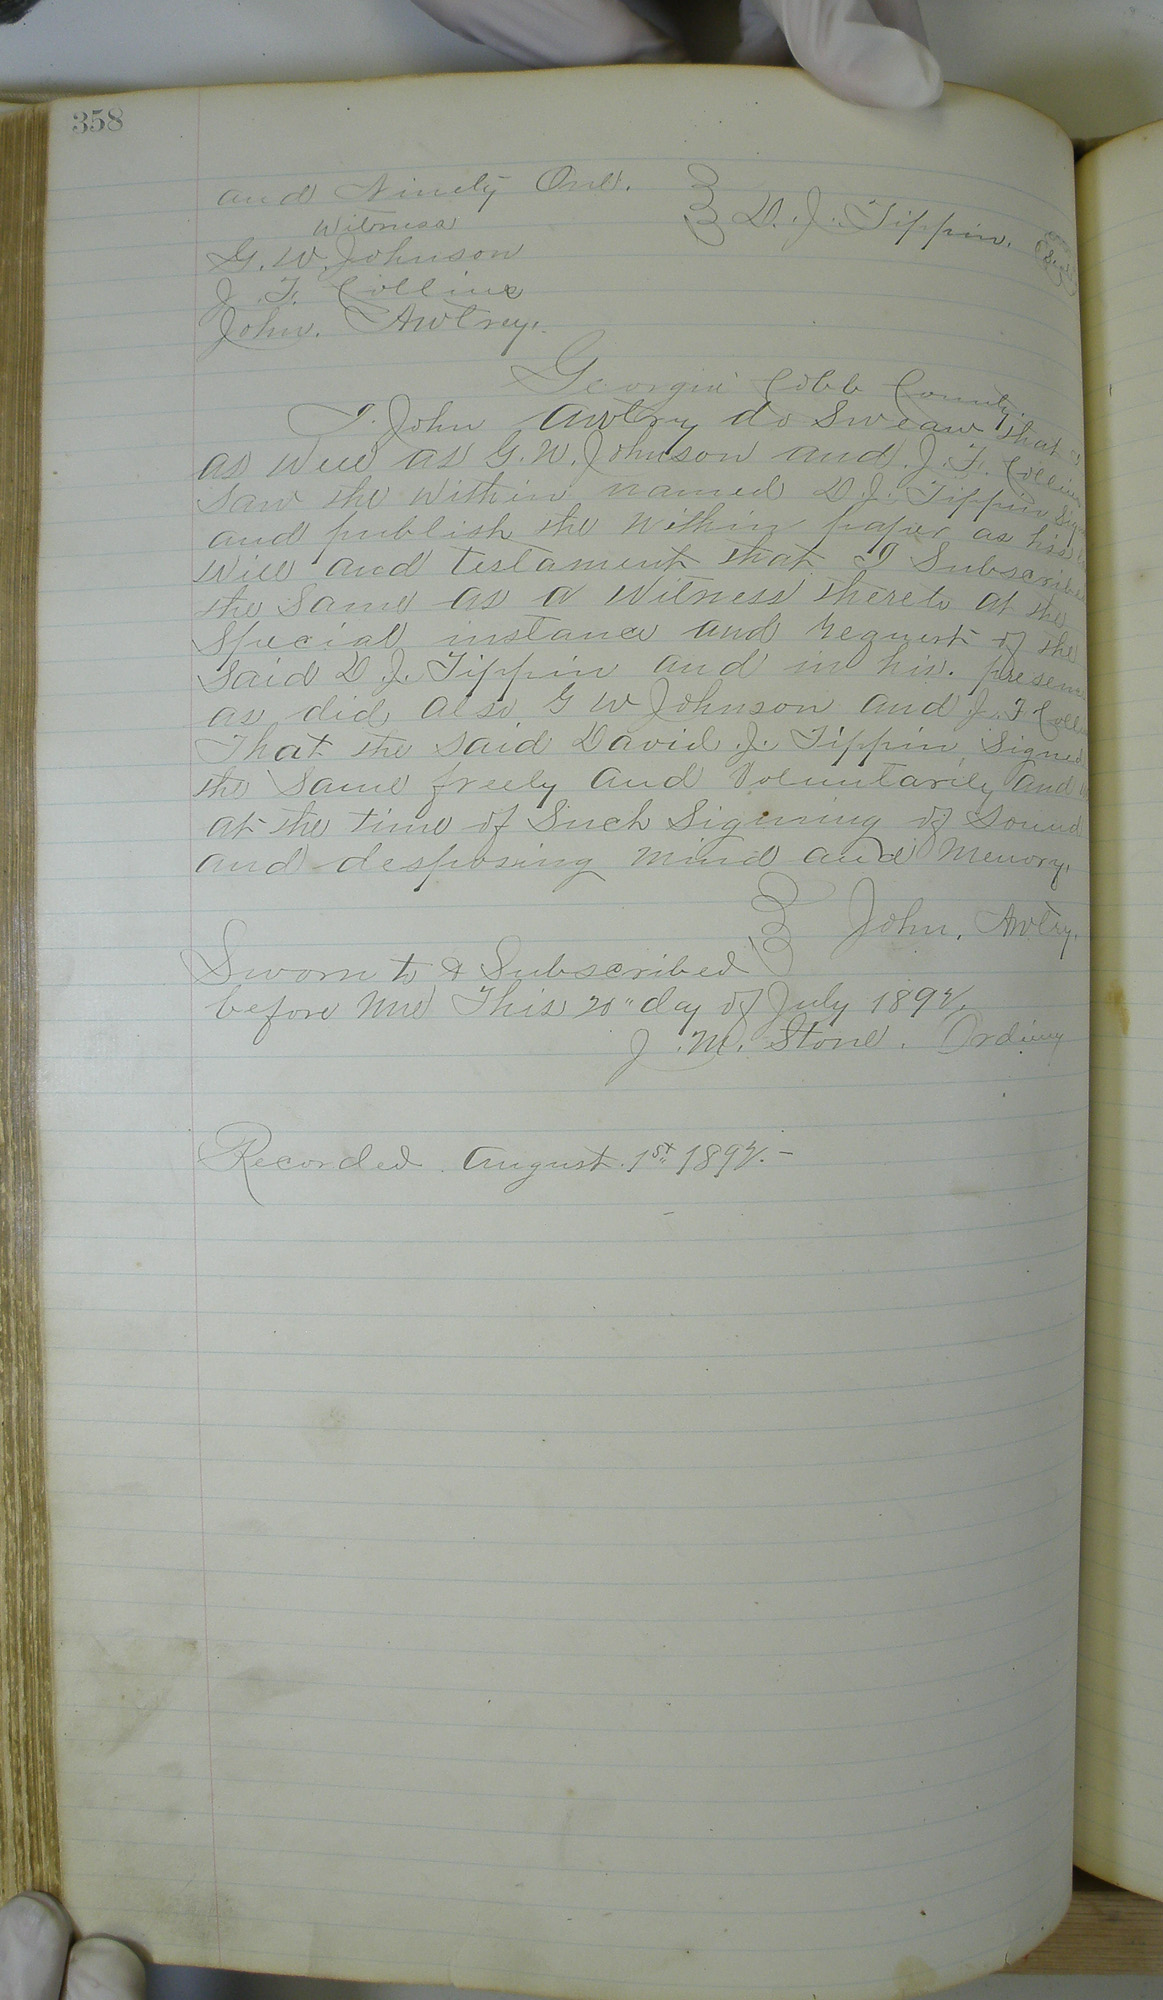 358
and Ninety One.
D. J. Tippin. Seal
Witness
G. W. Johnson
J. F. Collins
John. Awtrey.
Georgia Cobb County.
I. John Awtry do Swear that
as well as G. W. Johnson and J. F. Collins
Saw the Within named D. J. Tippin Sign
and publish the Within paper as his
Will and testament that I Subscribed
the Same as a Witness thereto at the
Special instance and request of the
Said D J. Tippin and in his. presence
as did also G W Johnson and J. F Collins
That the said David J. Tippin Signed
the Same freely and Voluntarily and
at the time of Such Signing of Sound
and desposing mind and Memory.
John. Awtry.
Sworn to & Subscribed
before me This 20" day of July 1892.
J. M. Stone. Ordinary
Recorded August. 1st 1892. -